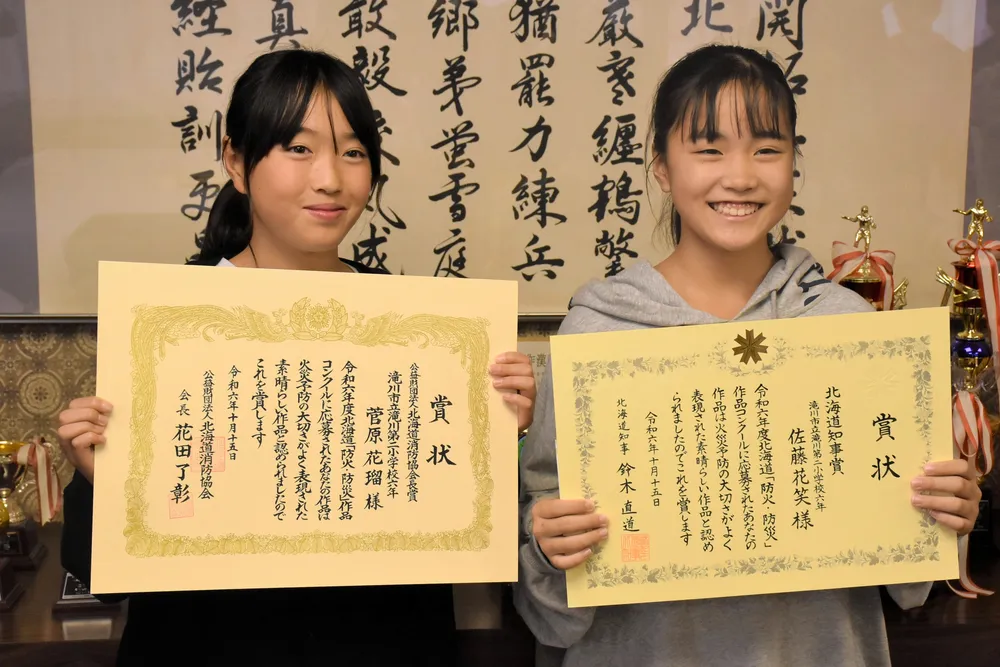 開拓
北
厳寒纏鶴氅
猶罷力練兵
郷弟蛍雪庭
敢毅
真
経貽訓更
賞状
公益財団法人北海道消防協会会長賞
滝川市立滝川第二小学校六年
菅原花瑠様
令和六年度北海道「防火・防災」作品
コンクールに応募されたあなたの作品は
火災予防の大切さがよく表現された
素晴らしい作品と認められましたので
これを賞します
令和六年十月十五日
公益財団法人北海道消防協会
会長 花田了彰
賞状
北海道知事賞
滝川市立滝川第二小学校六年
佐藤花笑様
令和六年度北海道「防火・防災」
作品コンクールに応募されたあなたの
作品は火災予防の大切さがよく
表現された素晴らしい作品と認め
られましたのでこれを賞します
令和六年十月十五日
北海道知事 鈴木直道